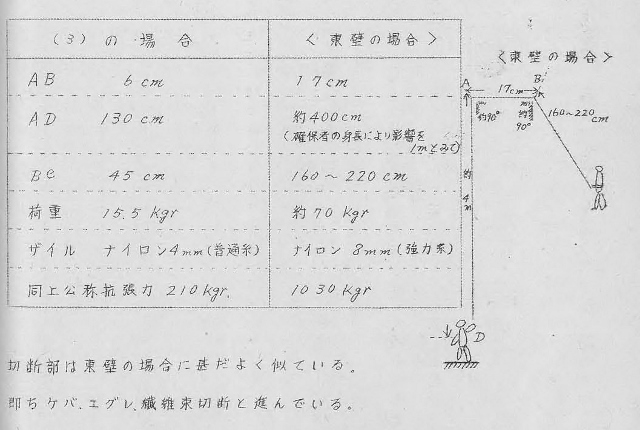 (3) の 場合 〈東壁の場合〉
AB 6 cm 17cm
AD 130 cm 約400cm
(確保者の身長により影響を
1mとみて)
BC 45 cm 160〜220 cm
荷重 15.5 Kgr 約70 Kgr
ザイル ナイロン4mm(普通糸) ナイロン 8mm(強力糸)
同上公称抗張力 210Kgr. 1030 Kgr.
〈東壁の場合〉
A 17cm B
約90° 約90°
160〜220 cm
約4m
D
切断部は東壁の場合に甚だよく似ている。
即ちケバ、エグレ、繊維束切断と進んでいる。